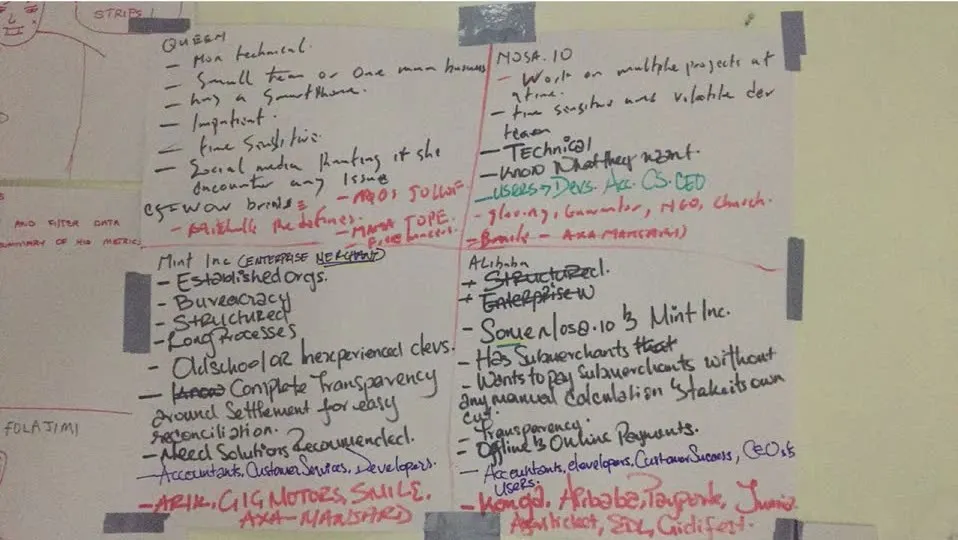 STRIPS!
QUEEN
- Non technical.
- Small team or one man business
- has a Smartphone.
- Impatient.
- time Sensitive.
- Social media Ranting if she
encounter any Issue
eg - WOW brides
- MAMA TOPE
NOSA.IO
- Work on multiple projects at
a time.
- time sensitive and volatile dev
team
- TECHNICAL
- Know What they want.
- USERS → Devs. Acc. CS. CEO
- NGO, Church.
- AXA MANSARD
AND FILTER DATA
SUMMARY OF HIS METRIC
FOLAJIMI
Mint Inc (ENTERPRISE MERCHANT)
- Established orgs.
- Bureacracy
- Structured
- Long Processes
- Oldschool or Inexperienced devs.
- Complete Transparency
around Settlement for easy
reconciliation.
- Need Solutions Recommended.
- Accountants, Customer Services, Developers.
- ARIK, GIG MOTORS, SMILE,
AXA-MANSARD
Alibaba
- Structured.
- Enterprise
- Some Nosa.io & Mint Inc.
- Has Submerchants that
- Wants to pay Submerchants without
any manual calculation & take its own
cut.
- Transparency.
- Offline & Online Payments.
- Accountants, developers, Customer Success, CEO as
users.
- Konga, Alibaba, Jumia
SDL, Gidifest.